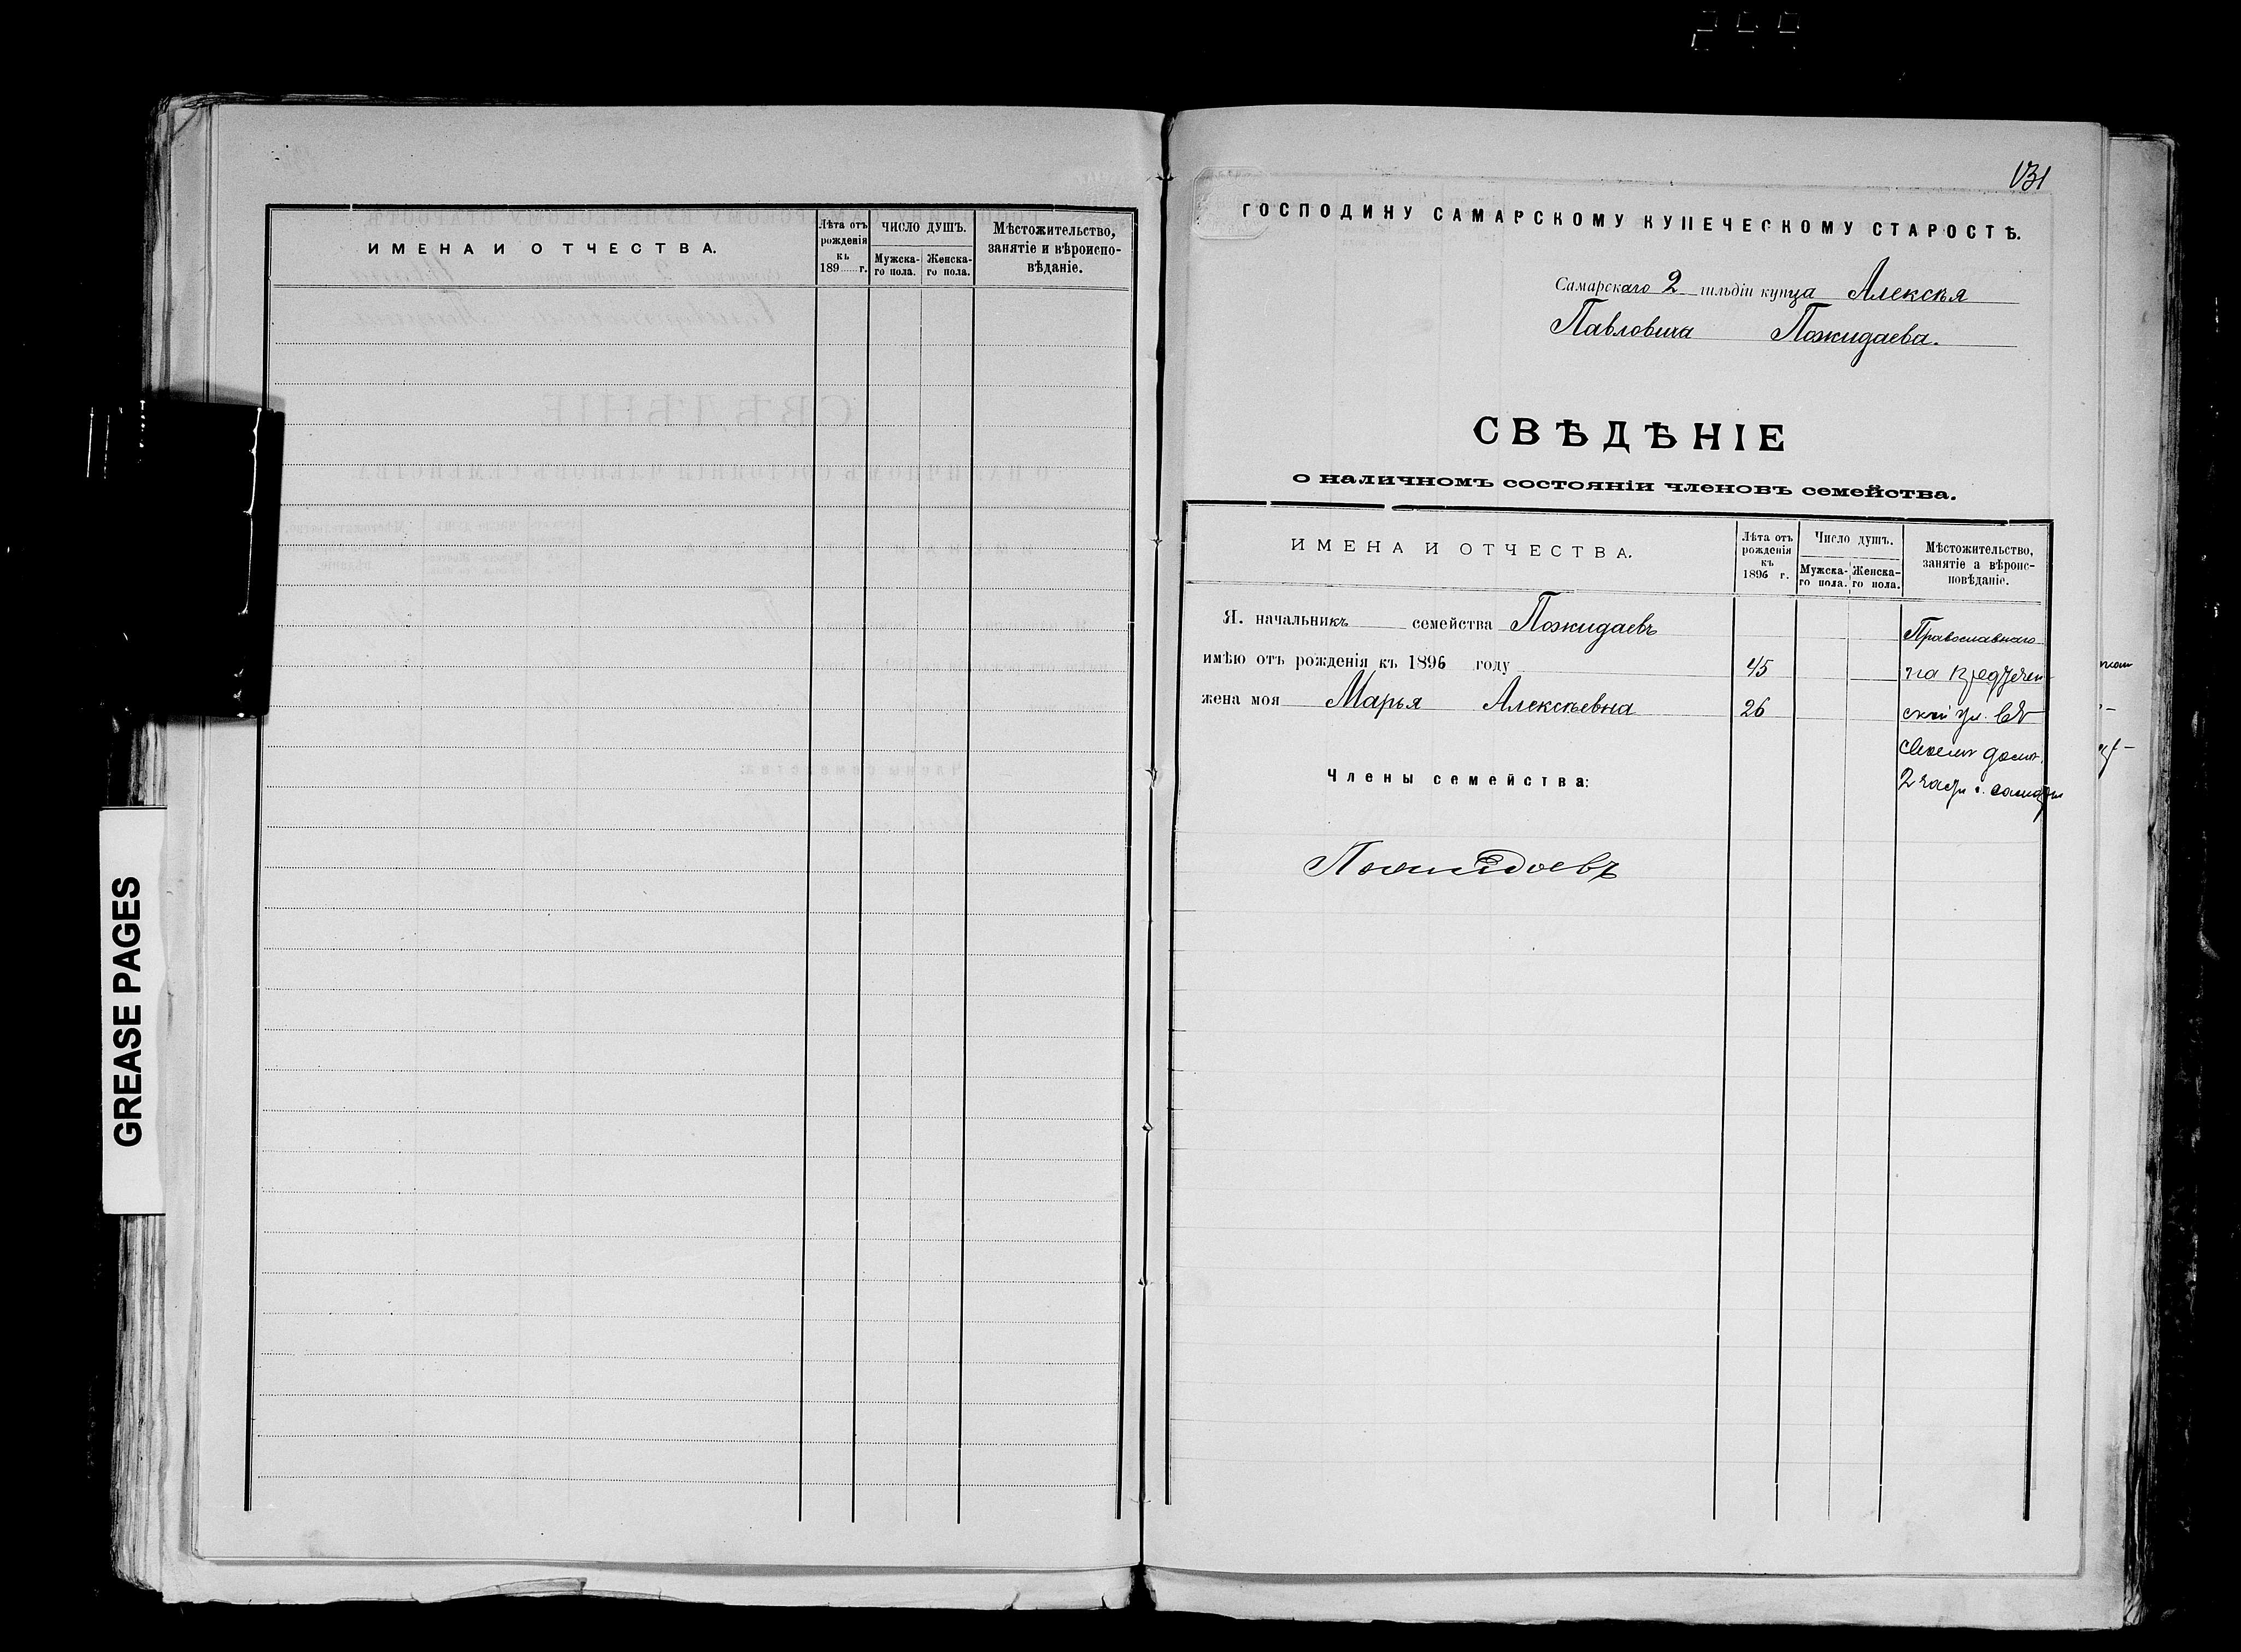 ИМЕНА И ОТЧЕСТВА.
Лѣта отъ рожденія къ 189 г.
ЧИСЛО ДУШЪ.
Мужска-го пола.
Женска-го пола.
Мѣстожительство, занятіе и вѣроиспо-вѣданіе.
GREASE PAGES
131
ГОСПОДИНУ САМАРСКОМУ КУПЕЧЕСКОМУ СТАРОСТѢ.
Самарскаго 2 гильдіи купца Алексѣя
Павловича Пожидаева.
СВѢДѢНІЕ
о наличномъ состояніи членовъ семейства.
ИМЕНА И ОТЧЕСТВА.
Лѣта отъ рожденія къ 1896 г.
Число душъ.
Мужска-го пола.
Женска-го пола.
Мѣстожительство, занятіе а вѣроис-повѣданіе.
Я. начальникъ семейства Пожидаевъ
Православнаго
имѣю отъ рожденія къ 1896 году 45
на Предтечен-
жена моя Марья Алексѣевна 26
ской ул. въ
своемъ домѣ.
Члены семейства:
2 части г. Самары
Пожидаевъ